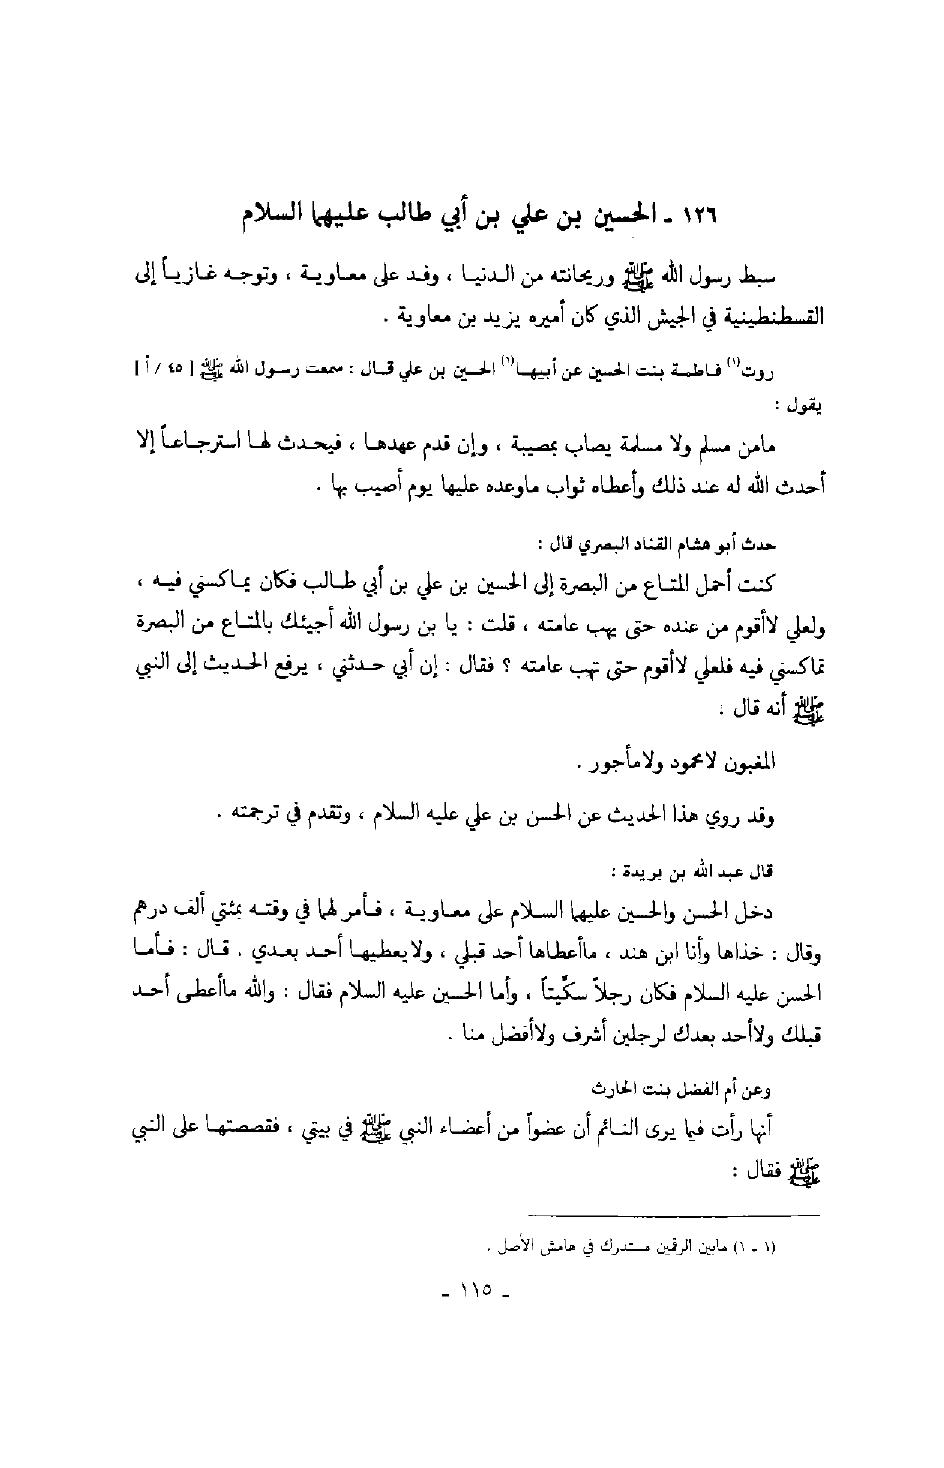 ١٢٦ ـ الحسين بن علي بن أبي طالب عليهما السلام
سبط رسول الله ﷺ وريحانته من الدنيا ، وفد على معاوية ، وتوجه غازياً إلى
القسطنطينية في الجيش الذي كان أميره يزيد بن معاوية .
روت(١) فاطمة بنت الحسين عن أبيها(١) الحسين بن علي قال : سمعت رسول الله ﷺ [ ٤٥ / أ ]
يقول :
مامن مسلم ولا مسلمة يصاب بمصيبة ، وإن قدم عهدها ، فيحدث لها استرجاعاً إلا
أحدث الله له عند ذلك وأعطاه ثواب ماوعده عليها يوم أصيب بها .
حدث أبو هشام القناد البصري قال :
كنت أحمل المتاع من البصرة إلى الحسين بن علي بن أبي طالب فكان يماكسني فيه ،
ولعلي لاأقوم من عنده حتى يهب عامته ، قلت : يا بن رسول الله أجيئك بالمتاع من البصرة
تماكسني فيه فلعلي لاأقوم حتى تهب عامته ؟ فقال : إن أبي حدثني ، يرفع الحديث إلى النبي
ﷺ أنه قال :
المغبون لامحمود ولامأجور .
وقد روي هذا الحديث عن الحسن بن علي عليه السلام ، وتقدم في ترجمته .
قال عبد الله بن بريدة :
دخل الحسن والحسين عليهما السلام على معاوية ، فأمر لهما في وقته بمئتي ألف درهم
وقال : خذاها وأنا ابن هند ، ماأعطاها أحد قبلي ، ولايعطيها أحد بعدي . قال : فأما
الحسن عليه السلام فكان رجلاً سكّيتاً ، وأما الحسين عليه السلام فقال : والله ماأعطى أحد
قبلك ولاأحد بعدك لرجلين أشرف ولاأفضل منا .
وعن أم الفضل بنت الحارث
أنها رأت فيما يرى النائم أن عضواً من أعضاء النبي ﷺ في بيتي ، فقصصتها على النبي
ﷺ فقال :
(١ ـ ١) مابين الرقمين مستدرك في هامش الأصل .
ـ ١١٥ ـ